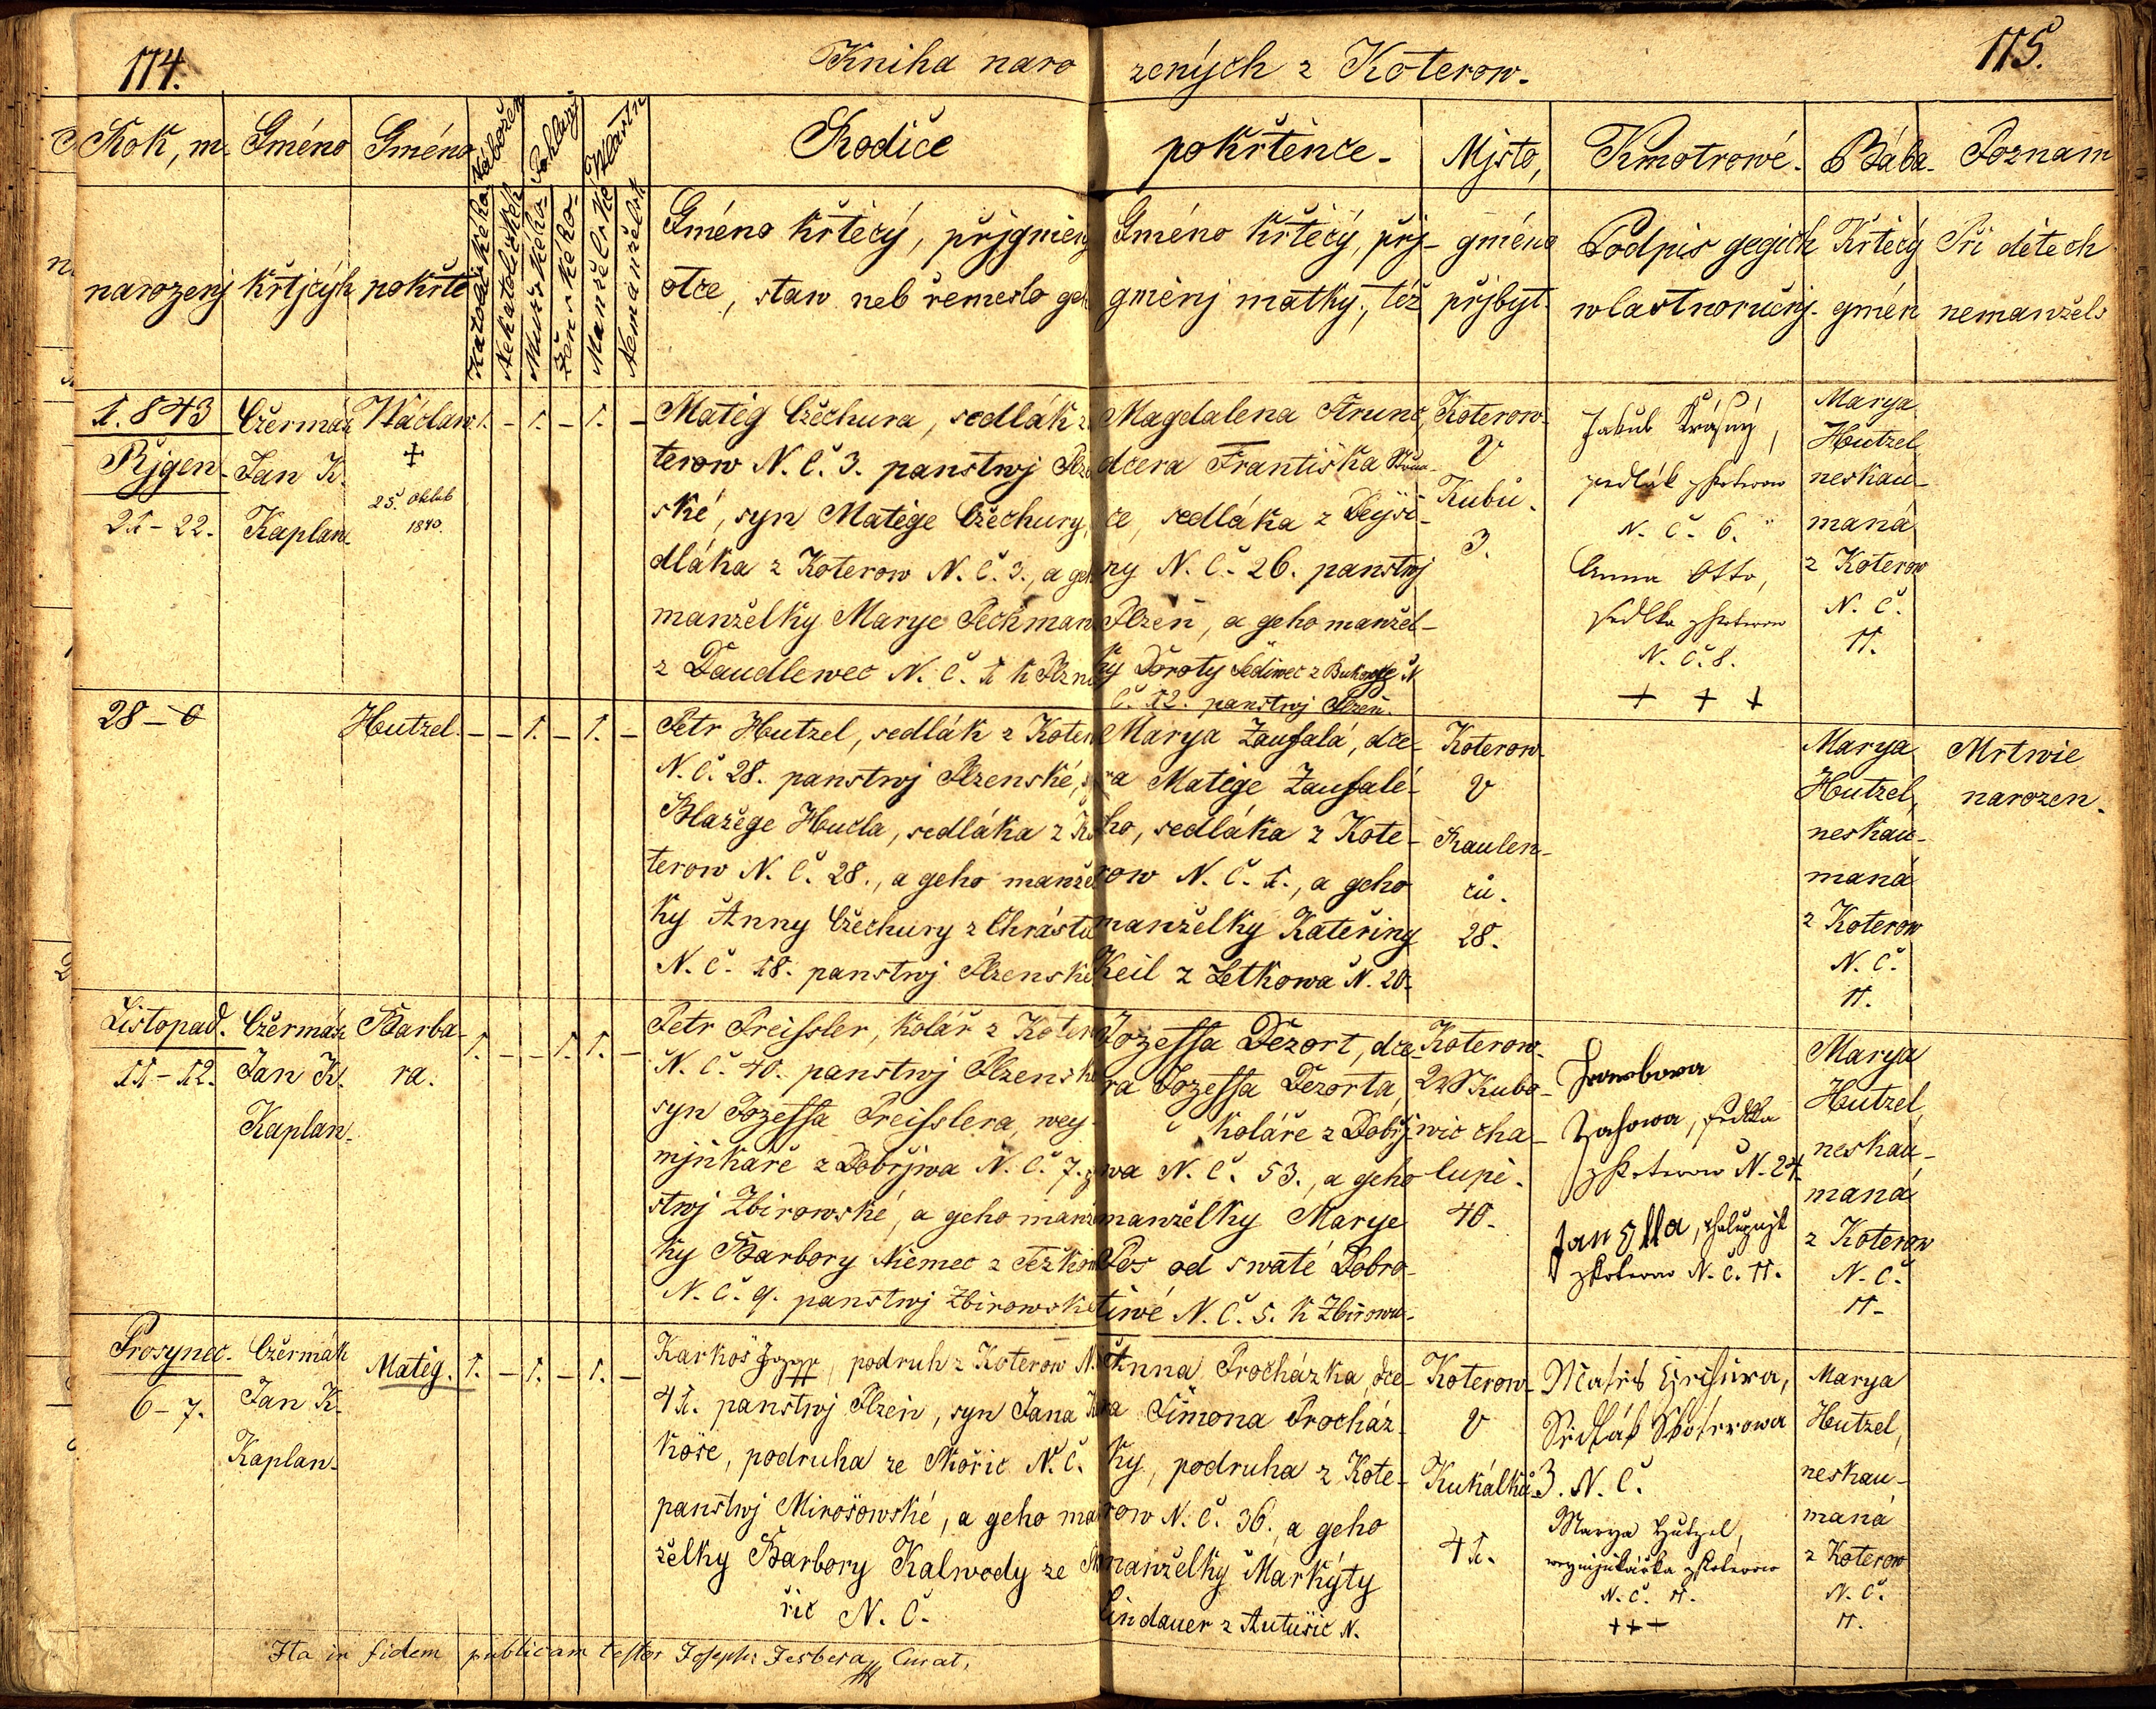 114.
Kniha naro zených z Koterow.
115.
Rok, m. Gméno Gméno Nábožen Pohlawj Rodiče pokřtěnce. Mjsto, Kmotrowé. Bába. Poznam
narozenj křtjcých pokřtě
Katolického
Nekatolických
Mužského
Ženského
Manželské
Nemanželské
Gméno křtěcý, přjgmenj
otce, staw neb řemeslo geh
Gméno křtěcý, přj-
gměnj matky, též
gméno
přjbyt.
Podpis gegich
wlastnoručnj.
Křtěcý
gmén
Při dětech
nemanžels
1.843
Řjgen.
21-22.
Czermák
Jan K.
Kaplan.
Wáclaw
25. Oktob
1840.
1. - 1. - 1. -
Matěg Czechura, sedlák z
terow N. Č. 3. panstwj Plze
ské, syn Matěge Czechury,
dláka z Koterow N. Č. 3., a geh
manželky Marye Peckman
z Daudlewec N. Č. 1 k Plzni
Magdalena Strunc,
dcera Frantiska Strun-
ce, sedláka z Deysi-
ny N. Č. 26. panstwj
Plzeň, a geho manžel-
ky Doroty Sediwec z N
Č. 12. panstwj Plzeň.
Koterow
V
Kubů.
3.
Jakub Krásný,
sedlák z Koterow
N. Č. 6.
Anna Otto,
sedlka z Koterow
N. Č. 8.
+ + +
Marya
Hutzel
neskau-
maná
z Koterow
N. Č.
11.
28-0
Hutzel.
- - 1. - 1. -
Petr Hutzel, sedlák z Koter
N. Č. 28. panstwj Plzenské, s
Blažege Hucla, sedláka z Ko
terow N. Č. 28., a geho manžel
ky Anny Czechury z Chrástu
N. Č. 18. panstwj Plzenské
Marya Zaufalá, dce-
ra Matěge Zaufalé-
ho, sedláka z Kote-
row N. Č. 1., a geho
manželky Kateřiny
Keil z Letkowa N. 20.
Koterow
V
Raulen-
ců.
28.
Marya
Hutzel,
neskau-
maná
z Koterow
N. Č.
11.
Mrtwie
narozen.
Listopad.
11-12.
Czermák
Jan K.
Kaplan.
Barba-
ra.
1. - - 1. 1. -
Petr Preissler, kolář z Koter
N. Č. 40. panstwj Plzenské
syn Jozeffa Preisslera, wey-
mjnkaře z Dobřjwa N. Č. 7.
stwj Zbirowské, a geho manžel
ky Barbory Niemec z Těžkow
N. Č. 9. panstwj Zbirowské
Jozeffa Dezort, dce-
ra Jozeffa Dezorta,
koláře z Dobřj-
wa N. Č. 53., a geho
manželky Marye
Pos od swaté Dobro-
tiwé N. Č. 5. k Zbirowu.
Koterow.
W Kubo-
wic cha-
lupě.
40.
Barbora
sedlka
z Koterow N. 24.
Jan Olla, chalupnjk
z Koterow N. Č. 11.
Marya
Hutzel,
neskau-
maná
z Koterow
N. Č.
11.
Prosynec.
6-7.
Czermák
Jan K.
Kaplan.
Matěg.
1. - 1. - 1. -
Karkoš Jozef, podruh z Koterow N.
41. panstwj Plzeň, syn Jana Kar
koše, podruha ze Skořic N. Č.
panstwj Mirošowské, a geho man
želky Barbory Kalwody ze Sko
řic N. Č.
Anna Procházka, dce-
ra Šimona Procház-
ky, podruha z Kote-
row N. Č. 36., a geho
manželky Markýty
Lindauer z Autušic N.
Koterow
V
Kukálků
41.
Matěg Czechura,
Sedlák z Koterowa
3. N. Č.
Marya Hutzel,
weymjnkářka z Koterow
N. Č. 11.
+ + +
Marya
Hutzel,
neskau-
maná
z Koterow
N. Č.
11.
Ita in fidem publicam testor Joseph Jesbera Curat,